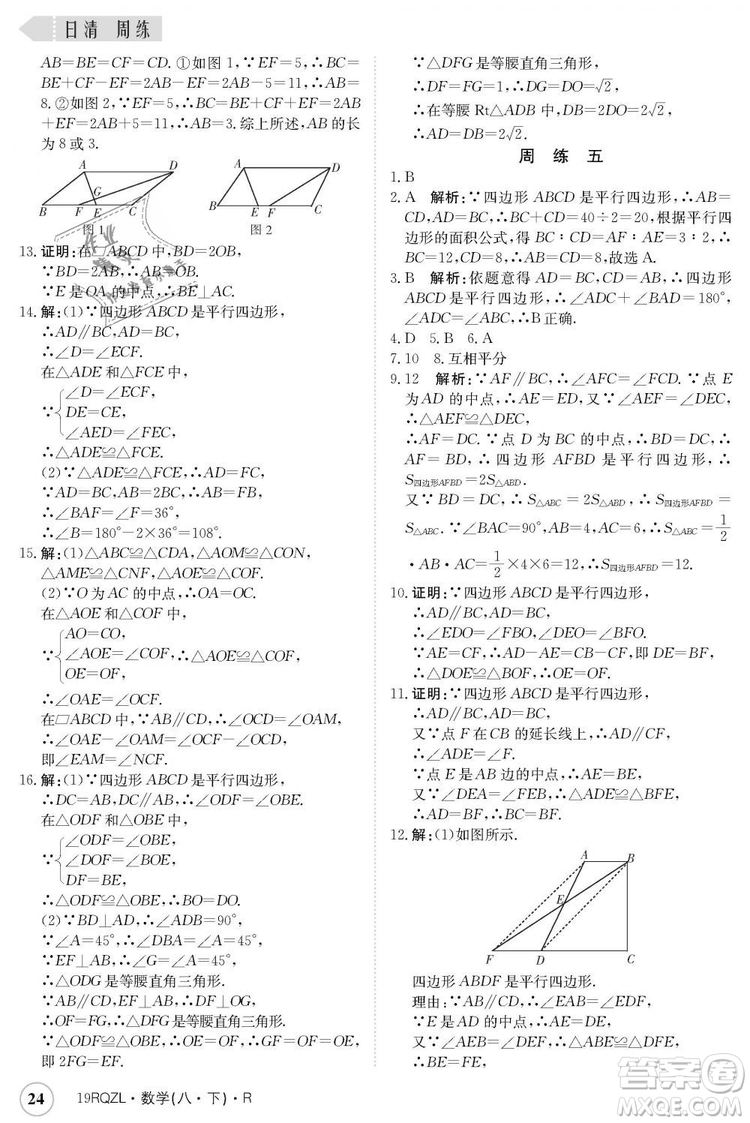 日清 周练
AB=BE=CF=CD. ①如图 1,∵EF=5,∴BC=
BE+CF-EF=2AB-EF=2AB-5=11,∴AB=
8. ②如图 2,∵EF=5,∴BC=BE+CF+EF=2AB
+EF=2AB+5=11,∴AB=3. 综上所述,AB的长
为 8 或 3.
A D G B F E C
图 1
A D B E F C
图 2
13. 证明:在□ABCD 中,BD=2OB,
∵BD=2AB,∴AB=OB.
∵E 是 OA 的中点,∴BE⊥AO.
14. 解:(1)∵四边形 ABCD 是平行四边形,
∴AD∥BC,AD=BC,
∴∠D=∠ECF.
在△ADE 和△FCE 中,
∵{∠D=∠ECF,
DE=CE,
∠AED=∠FEC,
∴△ADE≌△FCE.
(2)∵△ADE≌△FCE,∴AD=FC.
∵AD=BC,AB=2BC,∴AB=FB,
∴∠BAF=∠F=36°,
∴∠B=180°-2×36°=108°.
15. 解:(1)△ABC≌△CDA,△AOM≌△CON,
△AME≌△CNF,△AOE≌△COF.
(2)∵O 为 AC 的中点,∴AO=CO.
在△AOE 和△COF 中,
∵{AO=CO,
∠AOE=∠COF,∴△AOE≌△COF,
OE=OF,
∴∠OAE=∠OCF.
在□ABCD 中,∵AB∥CD,∴∠OCD=∠OAM,
∴∠OAE-∠OAM=∠OCF-∠OCD,
即∠EAM=∠NCF.
16. 解:(1)∵四边形 ABCD 是平行四边形,
∴DC=AB,DC∥AB,∴∠ODF=∠OBE.
在△ODF 和△OBE 中,
∵{∠ODF=∠OBE,
∠DOF=∠BOE,
DF=BE,
∴△ODF≌△OBE,∴BO=DO.
(2)∵BD⊥AD,∴∠ADB=90°,
∵∠A=45°,∴∠DBA=∠A=45°,
∴△ODG 是等腰直角三角形.
∵AB∥CD,EF⊥AB,∴DF⊥OG,
∴OF=FG,△DFG 是等腰直角三角形.
∵△ODF≌△OBE,∴OE=OF,∴GF=OF=OE,
即 2FG=EF.
∵△DFG 是等腰直角三角形,
∴DF=FG=1,∴DG=DO=√2,
∴在等腰 Rt△ADB 中,DB=2DO=2√2,
∴AD=DB=2√2.
周 练 五
1. B
2. A 解析:∵四边形 ABCD 是平行四边形,∴AB=
CD,AD=BC,∴BC+CD=40÷2=20,根据平行四
边形的面积公式,得 BC∶CD=AF∶AE=3∶2,∴
BC=12,CD=8,∴AB=CD=8,故选 A.
3. B 解析:依题意得 AD∥BC,AD=BC,∴四边形
ABCD 是平行四边形,∴∠ADC+∠BAD=180°,
∠ADC=∠ABC,∴B 正确.
4. D 5. B 6. A
7. 10 8. 互相平分
9. 12 解析:∵AF∥BC,∴∠AFC=∠FCD.∵点 E
为 AD 的中点,∴AE=ED,又∵∠AEF=∠DEC,
∴△AEF≌△DEC,
∴AF=DC. ∵点 D 为 BC 的中点,∴BD=DC,
∴AF=BD,∴四边形 AFBD 是平行四边形,∴
S四边形AFBD=2S△ABD.
又∵BD=DC,∴S△ABC=2S△ABD,∴S四边形AFBD=
S△ABC. ∵∠BAC=90°,AB=4,AC=6,∴S△ABC=1/2
·AB·AC=1/2×4×6=12,∴S四边形AFBD=12.
10. 证明:∵四边形 ABCD 是平行四边形,
∴AD∥BC,AD=BC,
∴∠EDO=∠FBO,∠DEO=∠BFO.
∵AE=CF,∴AD-AE=CB-CF,即 DE=BF,
∴△DOE≌△BOF,∴OE=OF.
11. 证明:∵四边形 ABCD 是平行四边形,
∴AD∥BC,
又∵点 F 在 CB 的延长线上,∴AD∥CF,
∴∠ADE=∠BFE.
∵点 E 是 AB 边的中点,∴AE=BE,
又∵∠AED=∠FEB,∴△ADE≌△BFE,
∴AD=BF.
12. 解:(1)如图所示.
A B E F D C
四边形 ABDF 是平行四边形.
理由:∵AB∥CD,∴∠EAB=∠EDF,
∵E 是 AD 的中点,∴AE=DE,
又∵∠AEB=∠DEF,∴△ABE≌△DFE,
∴BE=FE,
24 19RQZL·数学(八·下)·R